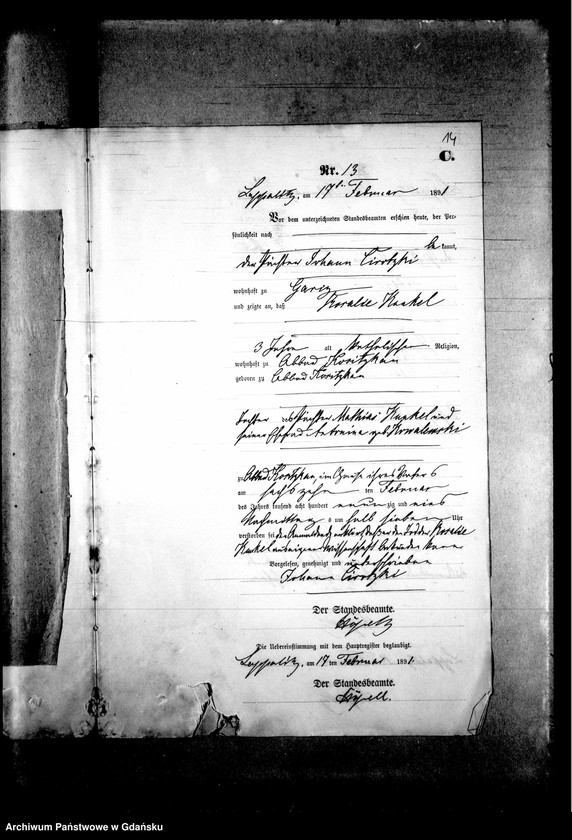 14
C.
Nr. 13
am 17ten Februar 1891
Vor dem unterzeichneten Standesbeamten erschien heute, der Per-
sönlichkeit nach
be kannt,
der Pächter Johann Cirotzki
wohnhaft zu
und zeigte an, daß Rosalie Kunkel
3 Jahre alt katholischer Religion,
wohnhaft zu Abbau
geboren zu Abbau
Tochter des Pächter Mathias Kunkel und
seiner Ehefrau Antonina geb. Kowalewski
zu Abbau im Hause ihres Vaters
am sechszehn ten Februar
des Jahres tausend acht hundert neun zig und eins
Nachmittag s um halb sieben Uhr
verstorben sei
Kunkel aus eigener Wissenschaft
Vorgelesen, genehmigt und unterschrieben
Johann Cirotzki
Der Standesbeamte.
Die Uebereinstimmung mit dem Hauptregister beglaubigt.
am 17 ten Februar 1891
Der Standesbeamte.
Archiwum Państwowe w Gdańsku